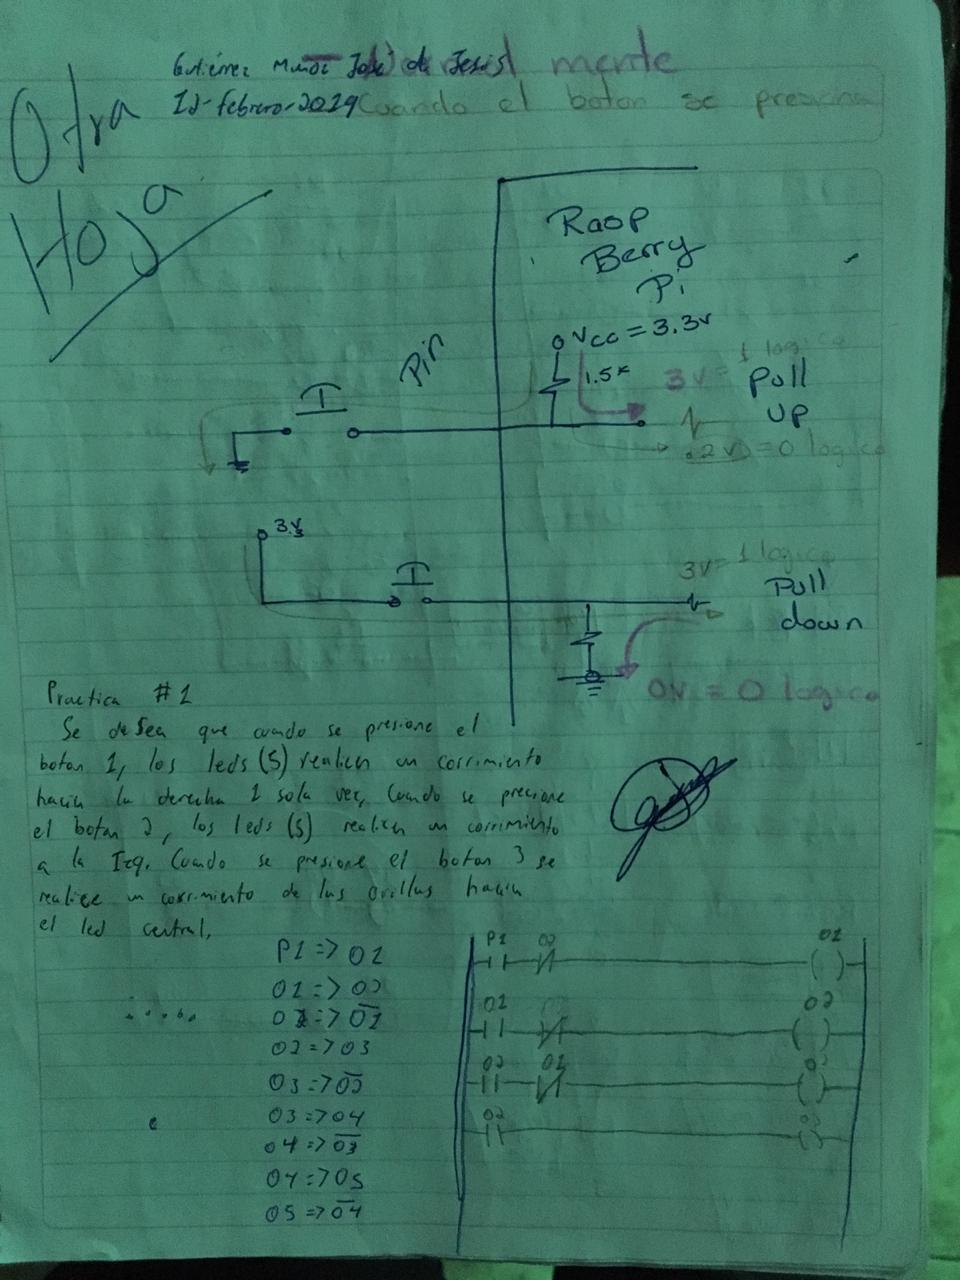 Otra
Hoja
Gutiérrez Muñoz José de Jesús mente
12-febrero-2019 Cuando el boton se presiona
Rasp
Berry
Pi
Pin
Vcc = 3.3v
1.5K
3V= 1 logico
Pull
UP
.2V = 0 logico
3.3
3V= 1 logico
Pull
down
0V = 0 logico
Practica #1
Se desea que cuando se presione el
boton 1, los leds (5) realicen un corrimiento
hacia la derecha 1 sola vez, Cuando se precione
el boton 2, los leds (5) realicen un corrimiento
a la Izq. Cuando se presione el boton 3 se
realice un corrimiento de las orillas hacia
el led central,
P1 => 01
01 => 02
02 => 0̅1̅
02 => 03
03 => 0̅2̅
03 => 04
04 => 0̅3̅
04 => 05
05 => 0̅4̅
P1 02 01
01 02
02 01
02